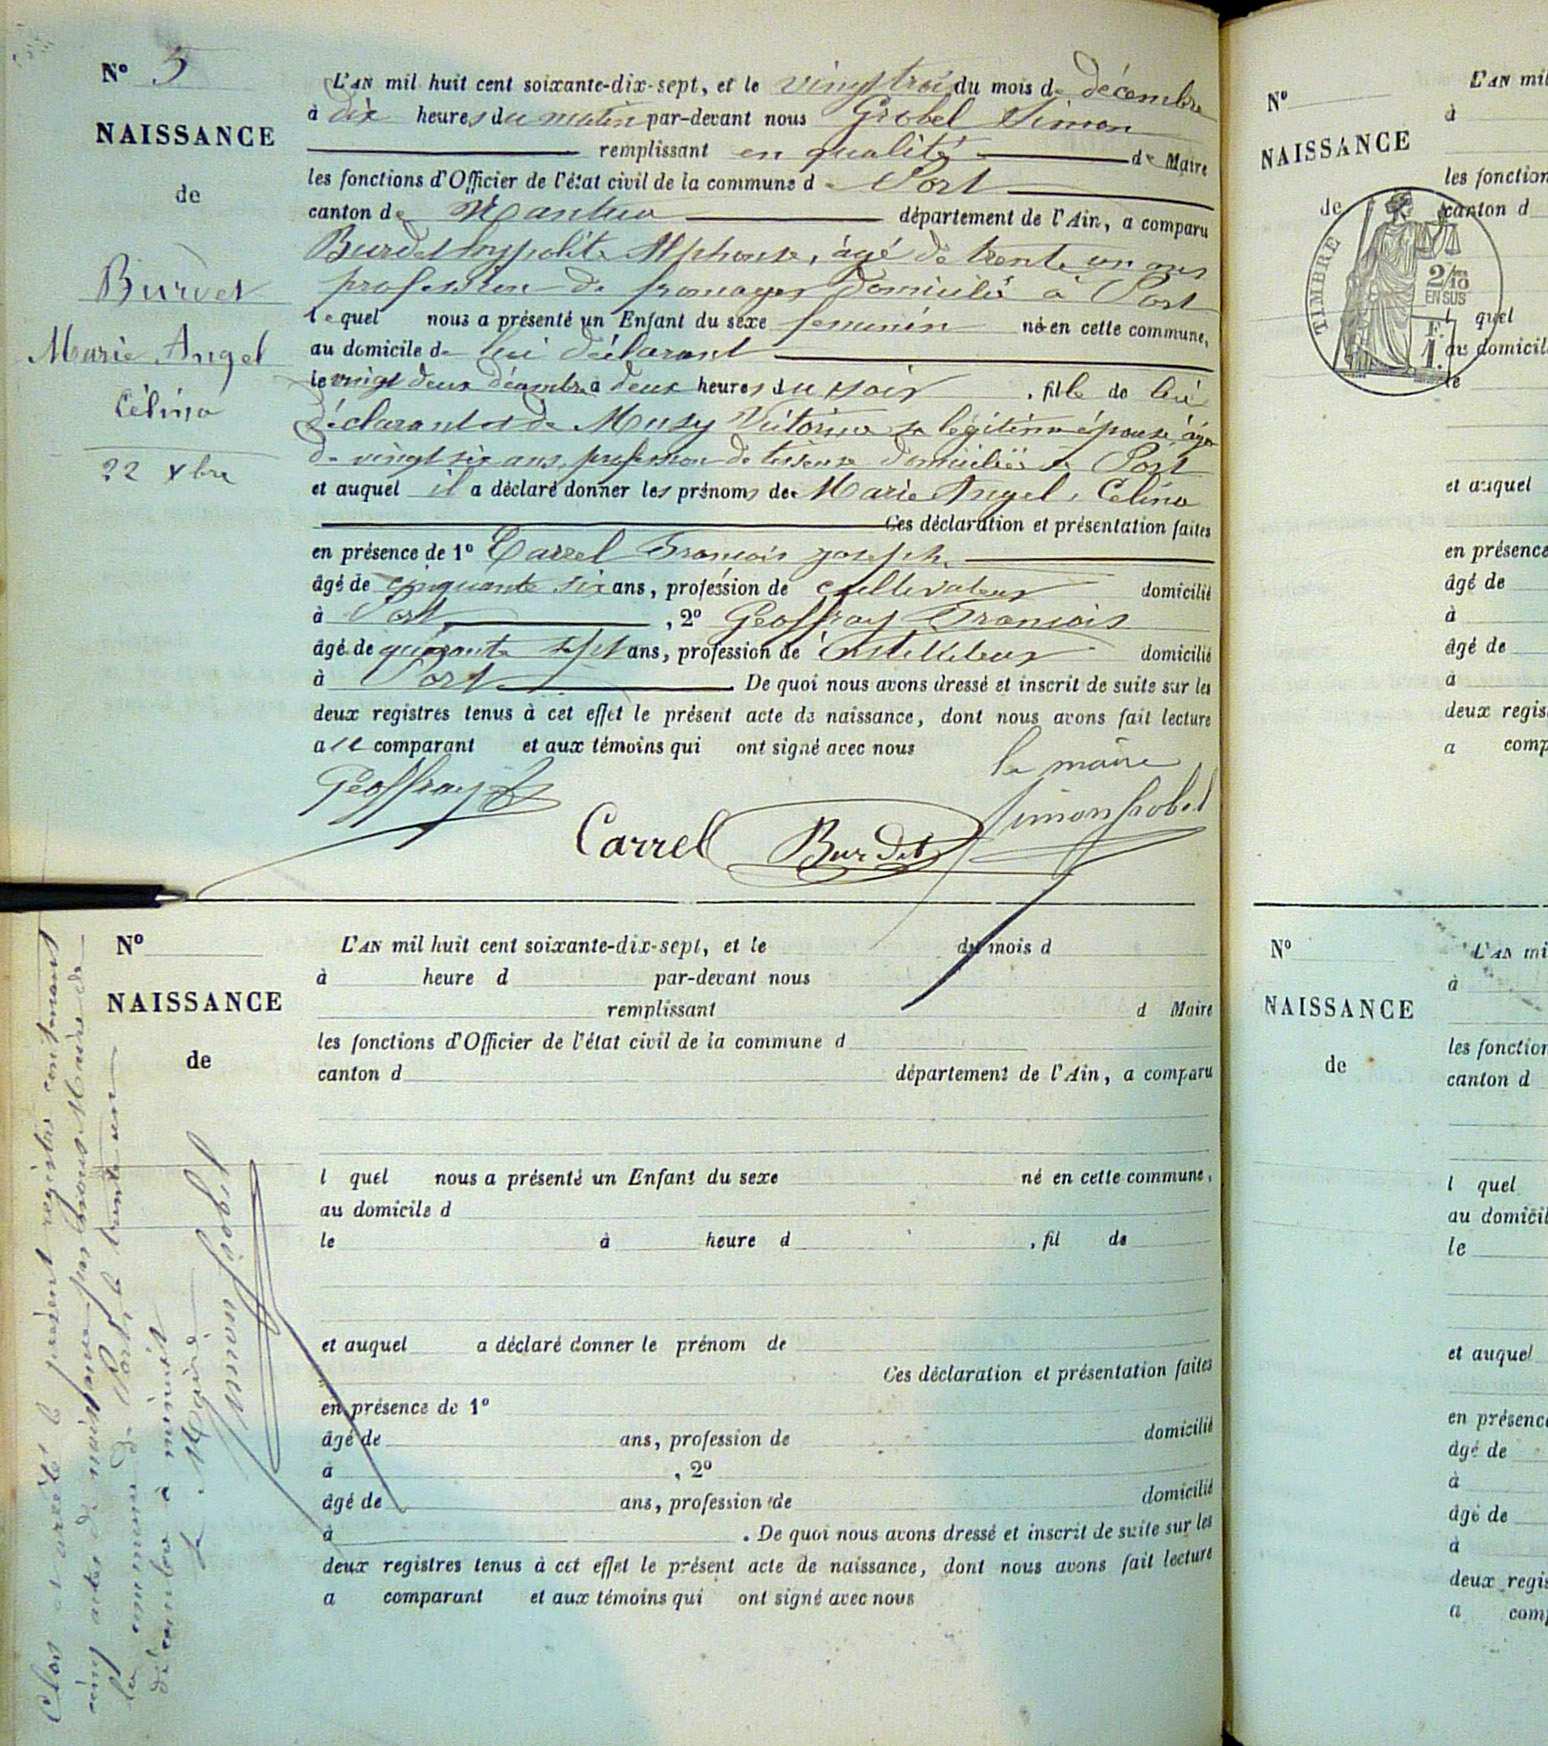 N° 5
NAISSANCE
de
Burdet
Marie Angel
Célina
22 Xbre
L'AN mil huit cent soixante-dix-sept, et le vingt trois du mois de décembre
à dix heures du matin par-devant nous Grobel Simon
remplissant en qualité de Maire
les fonctions d'Officier de l'état civil de la commune de Port
canton de Nantua département de l'Ain, a comparu
Burdet hypolite Alphonse, âgé de trente un ans
profession de fromager domicilié à Port
lequel nous a présenté un Enfant du sexe feminin né en cette commune,
au domicile de lui déclarant
le vingt deux décembre à deux heures du soir, fille de lui
déclarant et de Musy Victorine sa légitime épouse, âgée
de vingt six ans, profession de tisseuse domiciliée à Port
et auquel il a déclaré donner les prénoms de Marie Angel, Célina
Ces déclaration et présentation faites
en présence de 1° Carrel François joseph
âgé de cinquante six ans, profession de cultivateur domicilié
à Port, 2° Geoffray François
âgé de quarante sept ans, profession de domicilié
à Port De quoi nous avons dressé et inscrit de suite sur les
deux registres tenus à cet effet le présent acte de naissance, dont nous avons fait lecture
au comparant et aux témoins qui ont signé avec nous
le maire
Geoffray
Carrel Burdet Simon Grobel
Clos et arrêté le présent registre contenant
cinq actes de naissance par nous Maire de
la commune de Port, le trente un
décembre à minuit
le Maire
Simon Grobel
N°
NAISSANCE
de
L'AN mil huit cent soixante-dix-sept, et le du mois d
à heure d par-devant nous
remplissant d Maire
les fonctions d'Officier de l'état civil de la commune d
canton d département de l'Ain, a comparu
l quel nous a présenté un Enfant du sexe né en cette commune,
au domicile d
le à heure d , fil de
et auquel a déclaré donner le prénom de
Ces déclaration et présentation faites
en présence de 1°
âgé de ans, profession de domicilié
à , 2°
âgé de ans, profession de domicilié
à . De quoi nous avons dressé et inscrit de suite sur les
deux registres tenus à cet effet le présent acte de naissance, dont nous avons fait lecture
a comparant et aux témoins qui ont signé avec nous
N°
NAISSANCE
de
TIMBRE
2/10
EN SUS
F.
1.
L'AN mil
à
les fonction
canton d
l quel
au domicil
le
et auquel
en présence
âgé de
à
âgé de
à
deux regis
a comp
N°
NAISSANCE
de
L'AN mi
à
les fonction
canton d
l quel
au domicil
le
et auquel
en présenc
âgé de
à
âgé de
à
deux regis
a comp